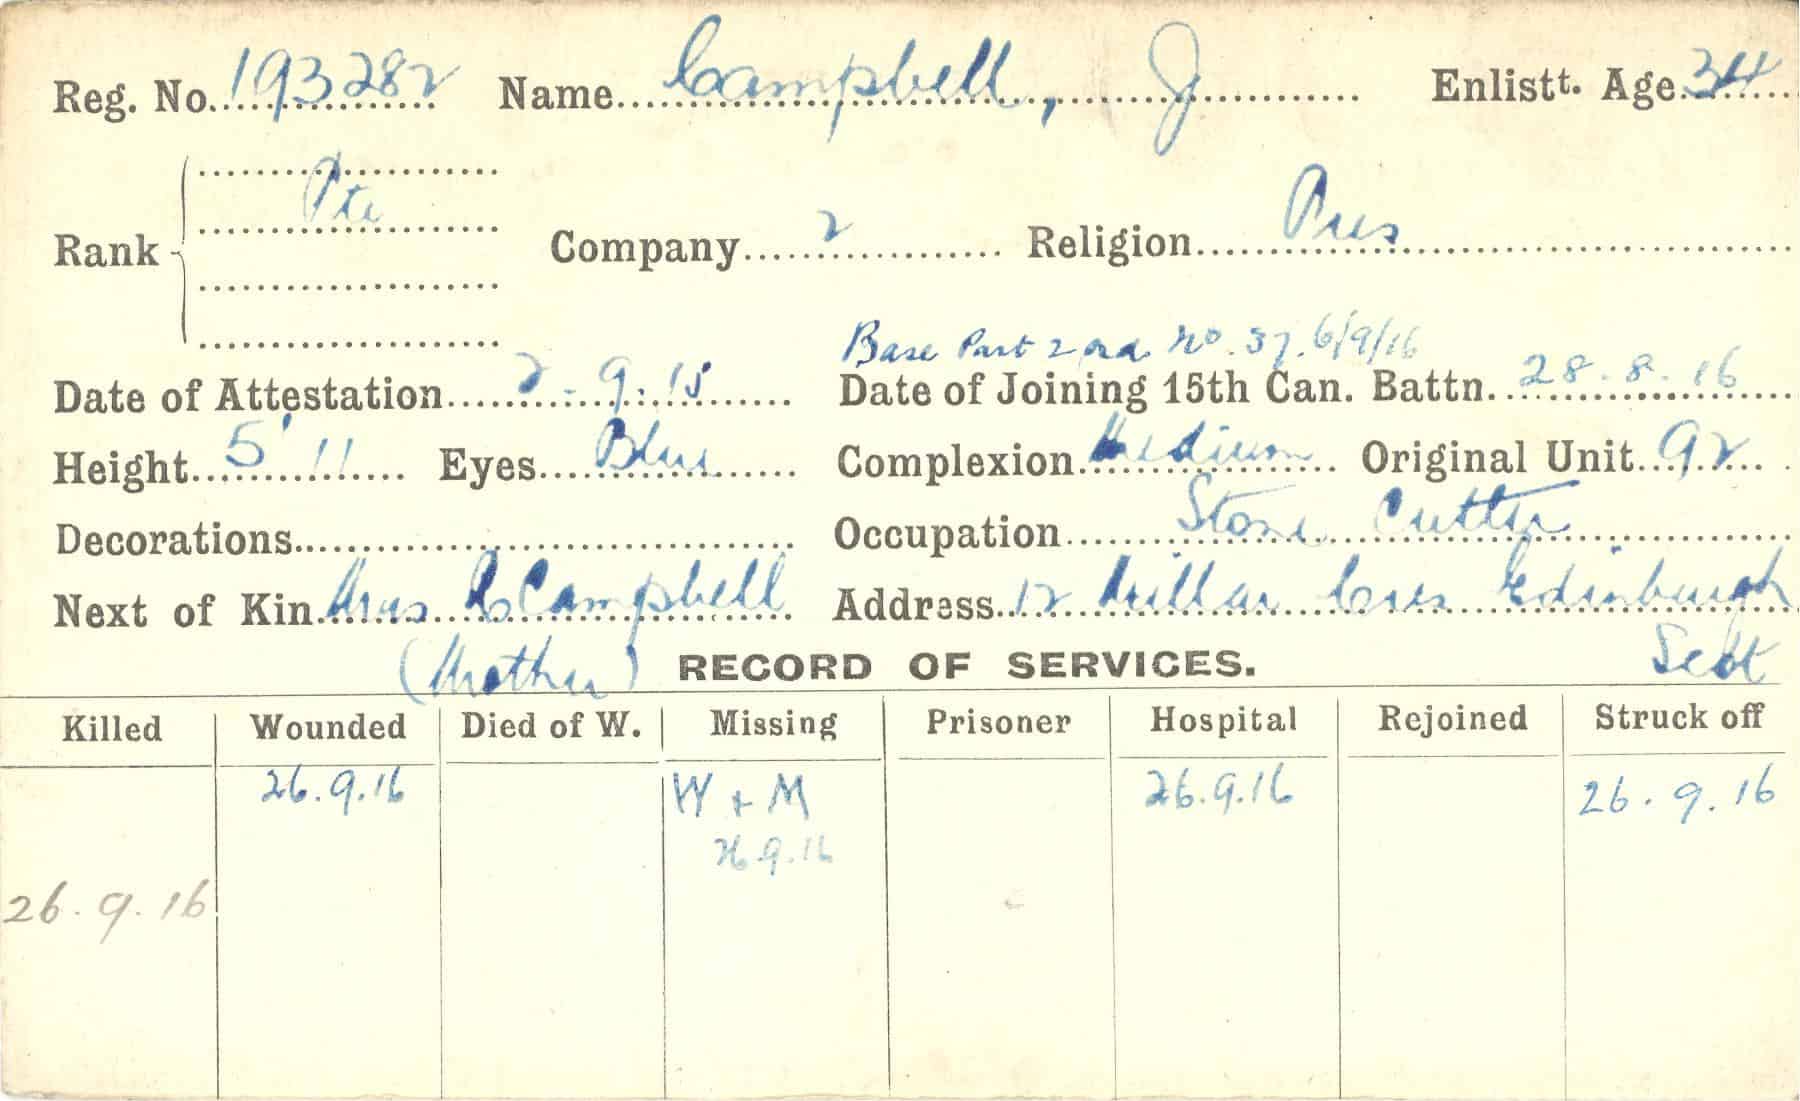 Reg. No. 193282 Name Campbell, J Enlistt. Age 34
Pte
Rank Company 2 Religion Pres
Base Part 2 ord. No. 37. 6/9/16
Date of Attestation 2-9-15 Date of Joining 15th Can. Battn. 28.8.16
Height 5' 11 Eyes Blue Complexion Medium Original Unit 92
Decorations Occupation Stone Cutter
Next of Kin Mrs C Campbell Address 12 Millar Cres Edinburgh
(Mother) RECORD OF SERVICES. Scot
Killed Wounded Died of W. Missing Prisoner Hospital Rejoined Struck off
26.9.16 W + M 26.9.16 26.9.16
26.9.16
26.9.16